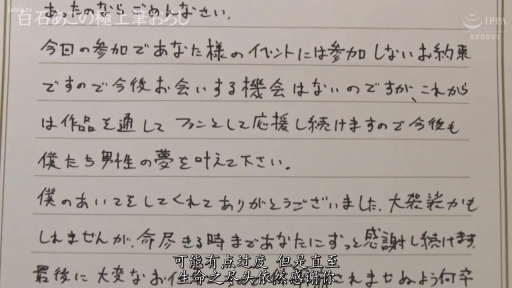 白石あこの極上筆おろし
IPPA
020001
あったのならごめんなさい。
今日の参加であなた様のイベントには参加しないお約束
ですので今後お会いする機会はないのですが、これから
は作品を通してファンとして応援し続けますので今後も
僕たち男性の夢を叶えて下さい。
僕のあいてをしてくれてありがとうございました。大袈裟かも
しれませんが、命尽きる時まであなたにずっと感謝し続けます
可能有点过度 但是直至
生命之尽头依然感谢你
最後に大変なお仕
これませぬよう何卒